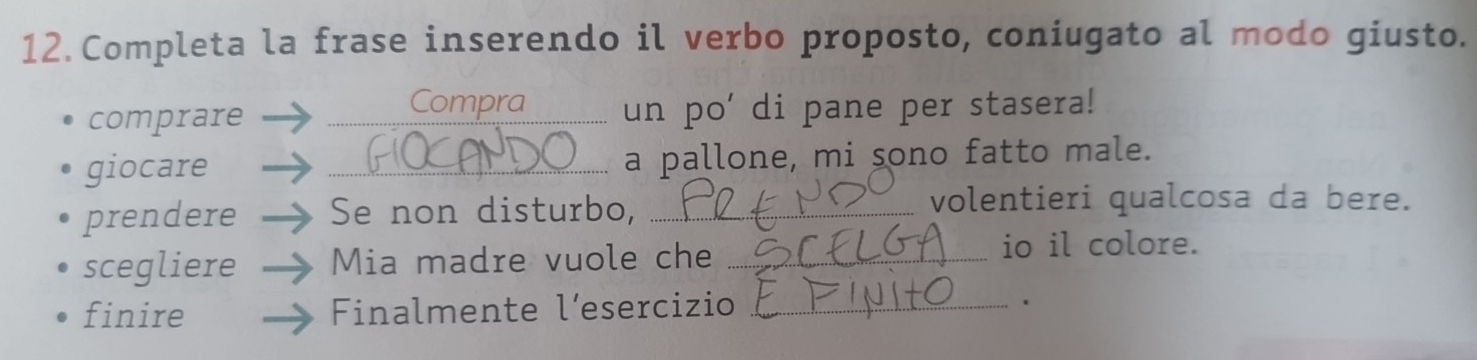 12. Completa la frase inserendo il verbo proposto, coniugato al modo giusto.
• comprare → Compra un po' di pane per stasera!
• giocare → GIOCANDO a pallone, mi sono fatto male.
• prendere → Se non disturbo, PRENDO volentieri qualcosa da bere.
• scegliere → Mia madre vuole che SCELGA io il colore.
• finire → Finalmente l'esercizio E FINITO .